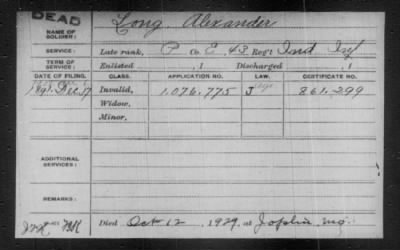 DEAD
NAME OF SOLDIER: Long, Alexander
SERVICE: Late rank, P Co. E, 43 Reg't Ind Inf
TERM OF SERVICE: Enlisted , 1 Discharged , 1
DATE OF FILING. CLASS. APPLICATION NO. LAW. CERTIFICATE NO.
Dec 17 Invalid, 1.076.775 J 861.299
Widow,
Minor,
ADDITIONAL SERVICES:
REMARKS:
Died Oct 12, 1929, at Joplin, Mo.